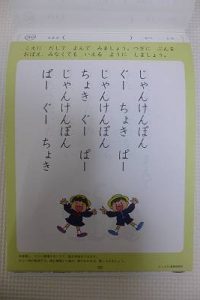 こえに だして よんで みましょう。つぎに ぶんを
おぼえ、みなくても いえる ように しましょう。
じゃんけんぽん
ぐー ちょき ぱー
じゃんけんぽん
ちょき ぐー ぱー
じゃんけんぽん
ぱー ぐー ちょき